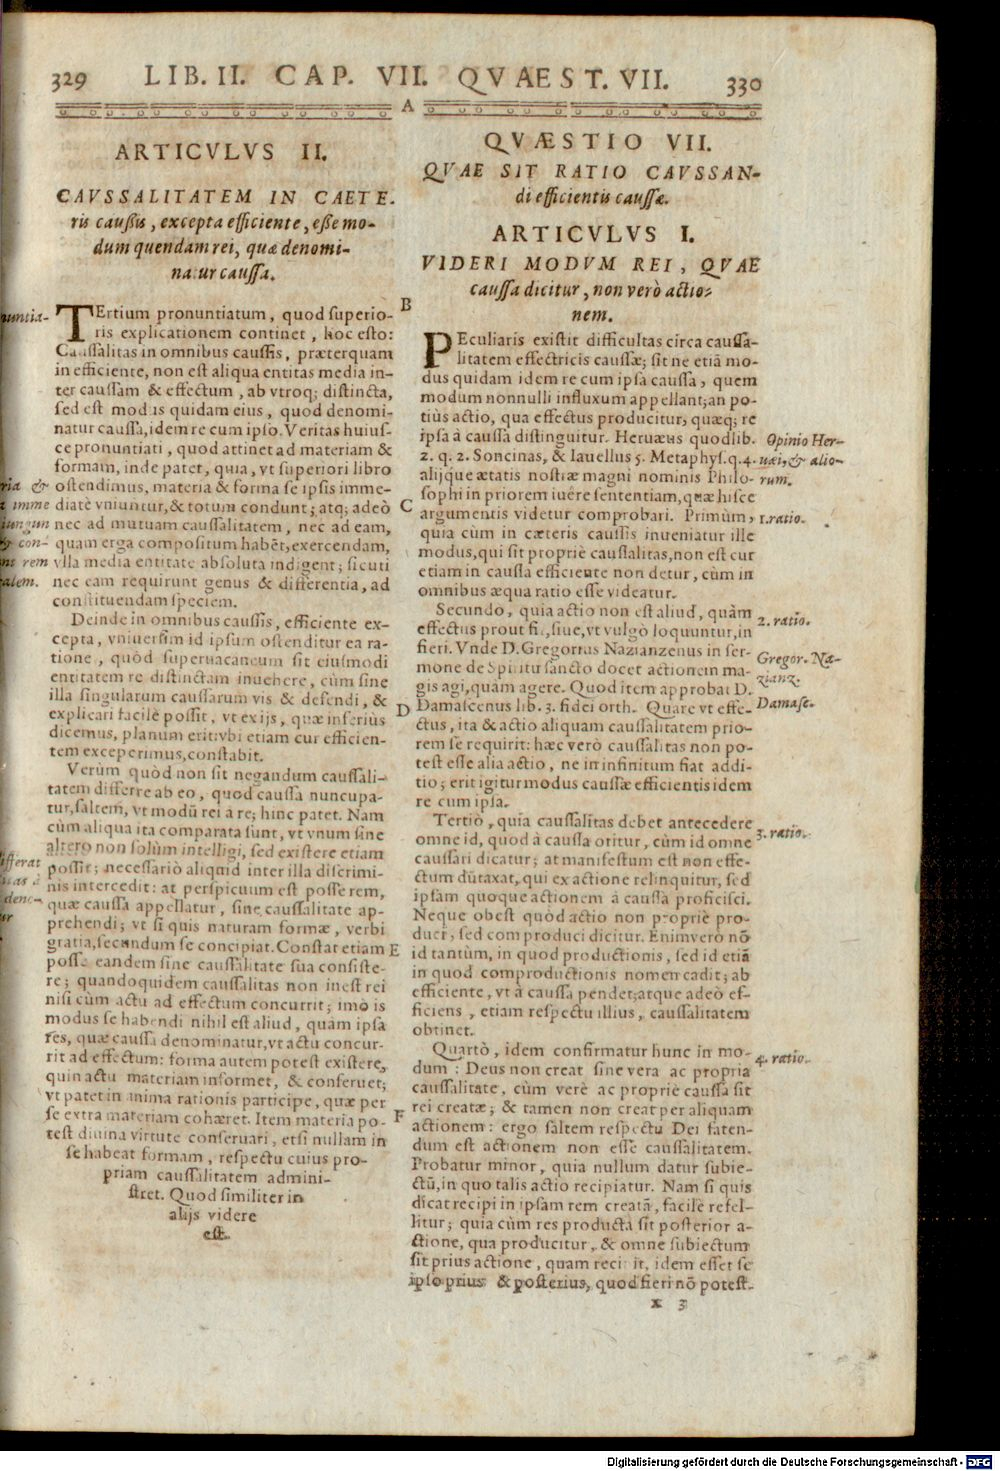 329 LIB. II. CAP. VII. QVAEST. VII. 330
A
ARTICVLVS II.
CAVSSALITATEM IN CAETE-
ris caußis, excepta efficiente, eße mo-
dum quendam rei, quæ denomi-
natur caussa.
TErtium pronuntiatum, quod superio-
ris explicationem continet, hoc esto:
Caussalitas in omnibus caussis, præterquam
in efficiente, non est aliqua entitas media in-
ter caussam & effectum, ab vtroq; distincta,
sed est modus quidam eius, quod denomi-
natur caussa, idem re cum ipso. Veritas huius-
ce pronuntiati, quod attinet ad materiam &
formam, inde patet, quia, vt superiori libro
ostendimus, materia & forma se ipsis imme-
diatè vniuntur, & totum condunt; atq; adeò
nec ad mutuam caussalitatem, nec ad eam,
quam erga compositum habẽt, exercendam,
vlla media entitate absoluta indigent; sicuti
nec eam requirunt genus & differentia, ad
constituendam speciem.
Deinde in omnibus caussis, efficiente ex-
cepta, vniuersim id ipsum ostenditur ea ra-
tione, quòd superuacaneum sit eiusmodi
entitatem re distinctam inuehere, cùm sine
illa singularum caussarum vis & defendi, &
explicari facilè possit, vt ex ijs, quæ inferiùs
dicemus, planum erit: vbi etiam cur efficien-
tem exceperimus, constabit.
Verùm quòd non sit negandum caussali-
tatem differre ab eo, quod caussa nuncupa-
tur, saltem, vt modũ rei à re; hinc patet. Nam
cùm aliqua ita comparata sunt, vt vnum sine
altero non solùm intelligi, sed existere etiam
possit; necessariò aliquid inter illa discrimi-
nis intercedit: at perspicuum est posse rem,
quæ caussa appellatur, sine caussalitate ap-
prehendi; vt si quis naturam formæ, verbi
gratia, secundum se concipiat. Constat etiam
posse eandem sine caussalitate sua consiste-
re; quandoquidem caussalitas non inest rei
nisi cùm actu ad effectum concurrit; imò is
modus se habendi nihil est aliud, quàm ipsa
res, quæ caussa denominatur, vt actu concur-
rit ad effectum: forma autem potest existere,
quin actu materiam informet, & conseruet;
vt patet in anima rationis participe, quæ per
se extra materiam cohæret. Item materia po-
test diuina virtute conseruari, etsi nullam in
se habeat formam, respectu cuius pro-
priam caussalitatem admini-
stret. Quod similiter in
alijs videre
est.
nuntia-
ria &
imme
iungun
& con-
rem
alem.
differat
deno-
ur
B
C
D
E
F
QVÆSTIO VII.
QVAE SIT RATIO CAVSSAN-
di efficientis caussæ.
ARTICVLVS I.
VIDERI MODVM REI, QVAE
caussa dicitur, non verò actio-
nem.
PEculiaris existit difficultas circa caussa-
litatem effectricis caussæ; sit ne etiã mo-
dus quidam idem re cum ipsa caussa, quem
modum nonnulli influxum appellant; an po-
tiùs actio, qua effectus producitur, quæq; re
ipsa à caussa distinguitur. Heruæus quodlib.
2. q. 2. Soncinas, & Iauellus 5. Metaphys. q. 4.
alijque ætatis nostræ magni nominis Philo-
sophi in priorem iuêre sententiam, quæ hisce
argumentis videtur comprobari. Primùm,
quia cùm in cæteris caussis inueniatur ille
modus, qui sit propriè caussalitas, non est cur
etiam in caussa efficiente non detur, cùm in
omnibus æqua ratio esse videatur.
Secundo, quia actio non est aliud, quàm
effectus prout fit, siue, vt vulgò loquuntur, in
fieri. Vnde D. Gregorius Nazianzenus in ser-
mone de Spiritu sancto docet actionem ma-
gis agi, quàm agere. Quod item approbat D.
Damascenus lib. 3. fidei orth. Quare vt effe-
ctus, ita & actio aliquam caussalitatem prio-
rem se requirit: hæc verò caussalitas non po-
test esse alia actio, ne in infinitum fiat addi-
tio; erit igitur modus caussæ efficientis idem
re cum ipsa.
Tertiò, quia caussalitas debet antecedere
omne id, quod à caussa oritur, cùm id omne
caussari dicatur; at manifestum est non effe-
ctum dũtaxat, qui ex actione relinquitur, sed
ipsam quoque actionem à caussa proficisci.
Neque obest quòd actio non propriè pro-
duci, sed comproduci dicitur. Enimverò nõ
id tantùm, in quod productionis, sed id etiã
in quod comproductionis nomen cadit; ab
efficiente, vt à caussa pendet; atque adeò ef-
ficiens, etiam respectu illius, caussalitatem
obtinet.
Quartò, idem confirmatur hunc in mo-
dum: Deus non creat sine vera ac propria
caussalitate, cùm verè ac propriè caussa sit
rei creatæ; & tamen non creat per aliquam
actionem: ergo saltem respectu Dei faten-
dum est actionem non esse caussalitatem.
Probatur minor, quia nullum datur subie-
ctũ, in quo talis actio recipiatur. Nam si quis
dicat recipi in ipsam rem creatã, facilè refel-
litur; quia cùm res producta sit posterior a-
ctione, qua producitur, & omne subiectum
sit prius actione, quam recipit, idem esset se
ipso prius & posterius, quod fieri nõ potest.
Opinio Her-
uæi, & alio-
rum.
1. ratio.
2. ratio.
Gregor. Na-
zianz.
Damasc.
3. ratio.
4. ratio.
x 3
Digitalisierung gefördert durch die Deutsche Forschungsgemeinschaft - DFG